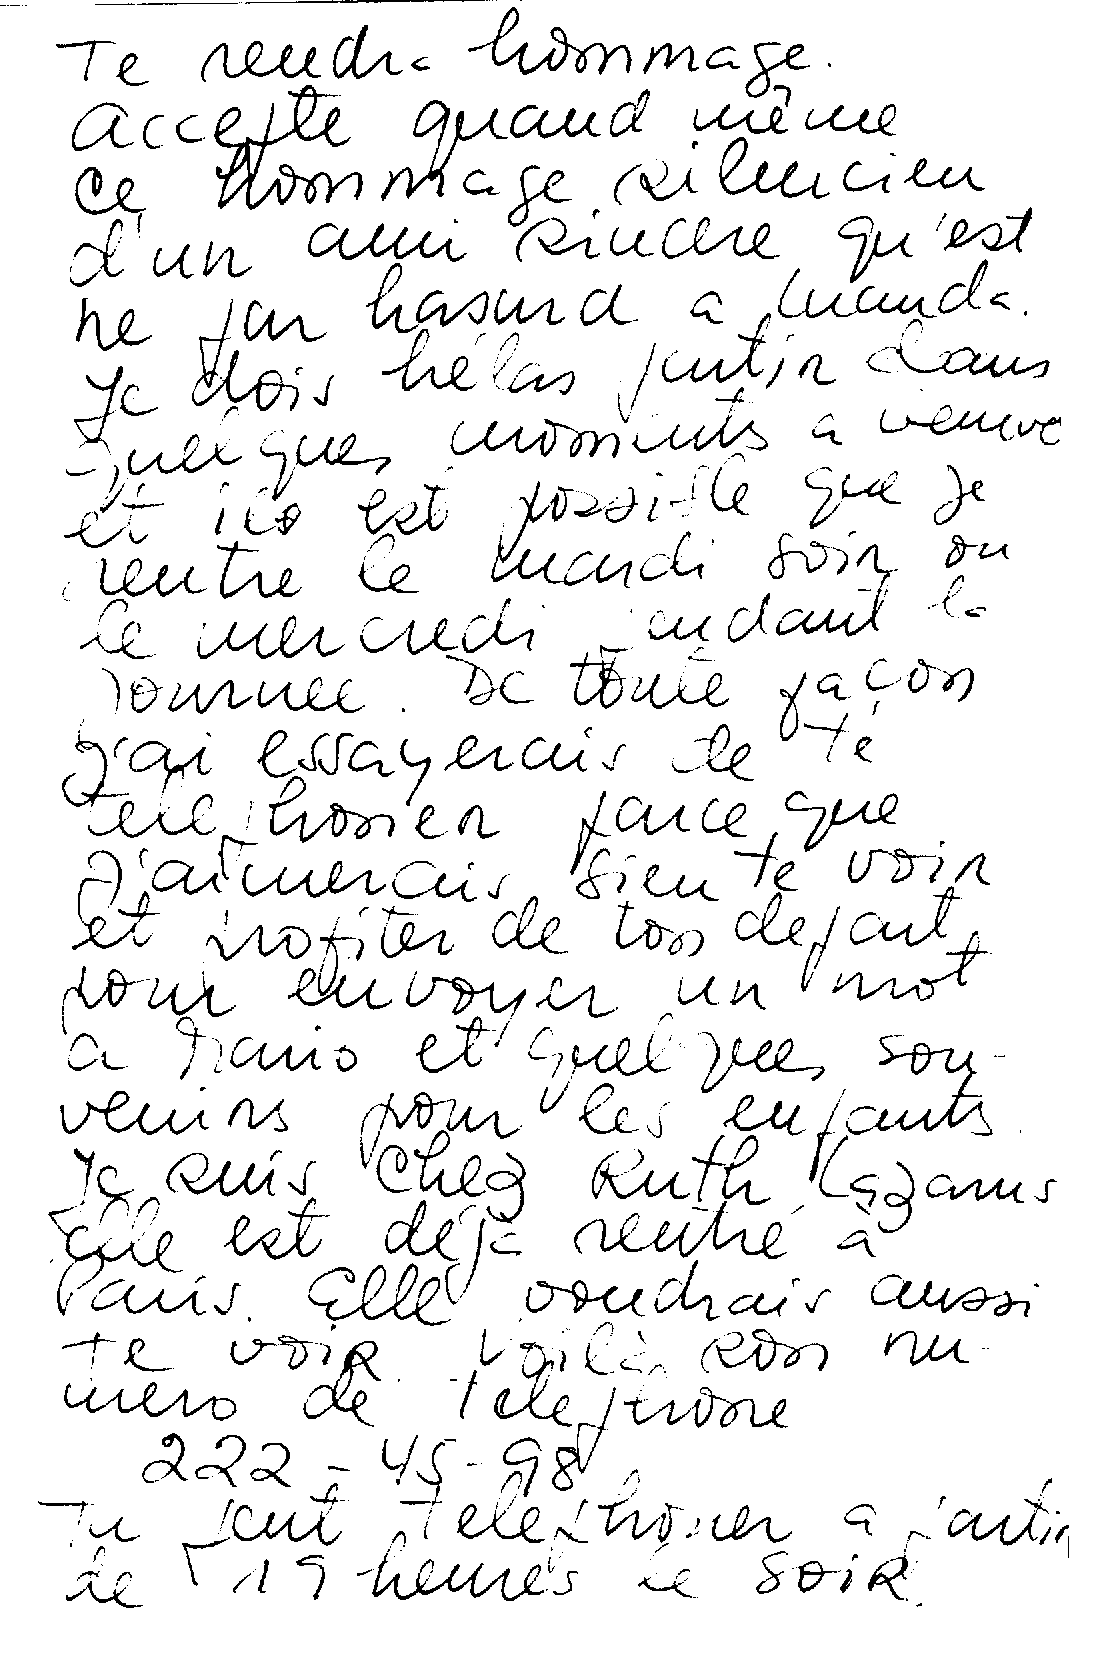 Te rendra hommage.
Accepte quand même
ce hommage silencieu
d'un ami sincère qu'est
né par hasard a Luanda.
Je dois hélas partir dans
quelques moments a
et il est possible que je
rentre le mardi soir ou
le mercredi pendant la
journée. De toute façon
j'ai essayerais de te
téléphoner parce que
j'aimerais bien te voir
et profiter de ton depart
pour envoyer un mot
a Mario et quelques sou-
venirs pour les enfants.
Je suis chez Ruth Lazarus
Elle est déjà rentré à
Paris. Elle voudrais aussi
te voir. Voilà son nu-
mero de telephone
222-45-98
Tu peut telephoner a partir
de 19 heures le soir.